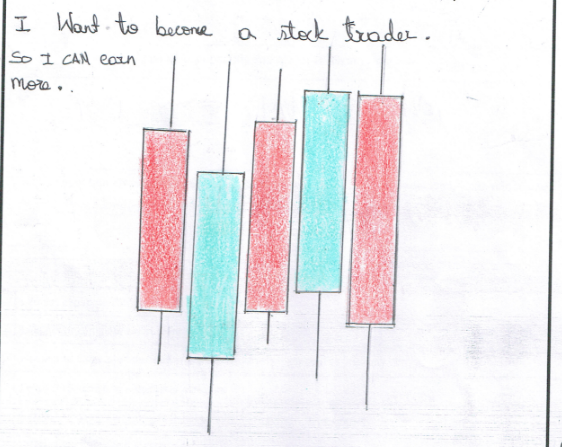 I Want to become a stock trader.
So I CAN earn
more..